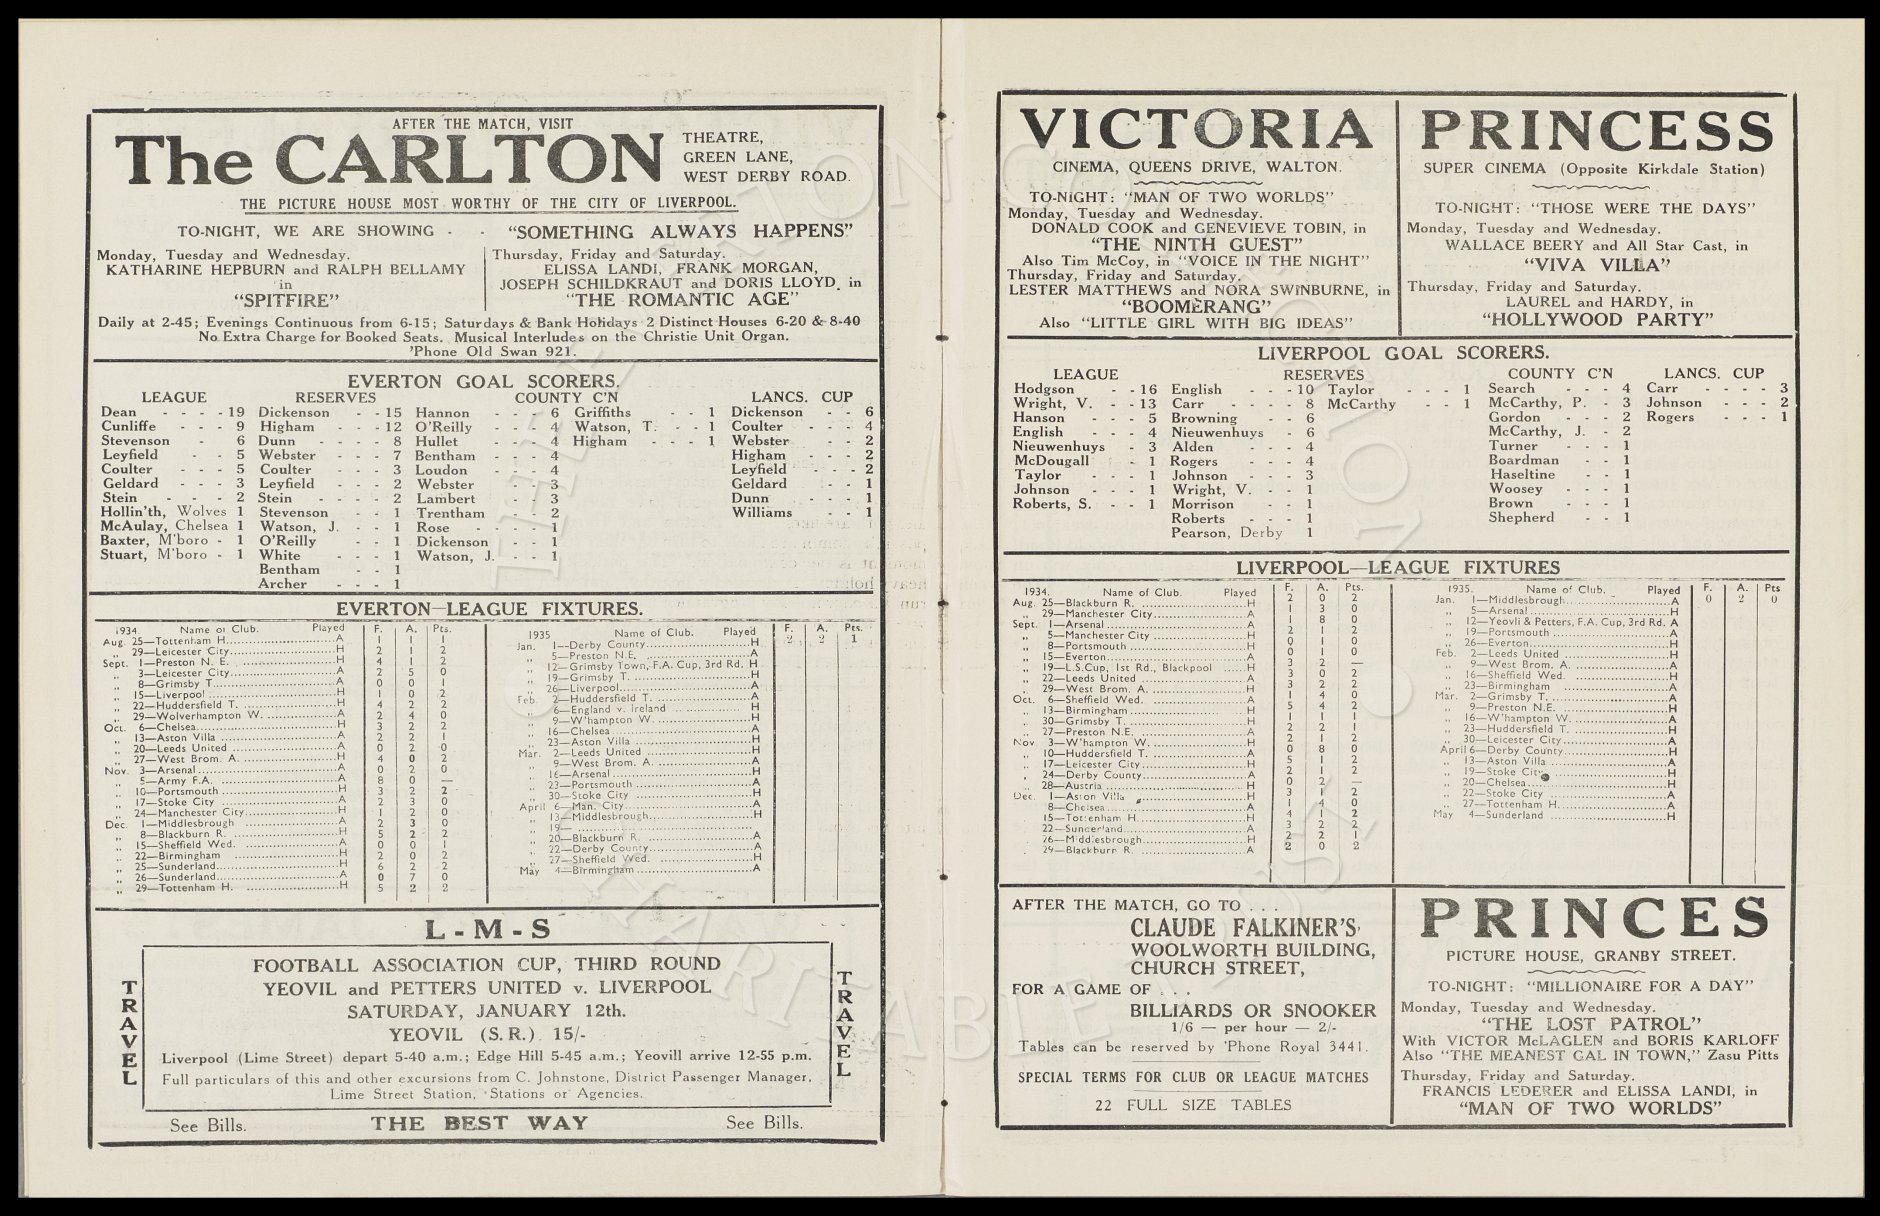 AFTER THE MATCH, VISIT
The CARLTON
THEATRE,
GREEN LANE,
WEST DERBY ROAD.
THE PICTURE HOUSE MOST WORTHY OF THE CITY OF LIVERPOOL.
TO-NIGHT, WE ARE SHOWING - - "SOMETHING ALWAYS HAPPENS"
Monday, Tuesday and Wednesday.
KATHARINE HEPBURN and RALPH BELLAMY
in
"SPITFIRE"
Thursday, Friday and Saturday.
ELISSA LANDI, FRANK MORGAN,
JOSEPH SCHILDKRAUT and DORIS LLOYD, in
"THE ROMANTIC AGE"
Daily at 2-45; Evenings Continuous from 6-15; Saturdays & Bank Holidays 2 Distinct Houses 6-20 & 8-40
No Extra Charge for Booked Seats. Musical Interludes on the Christie Unit Organ.
'Phone Old Swan 921.
EVERTON GOAL SCORERS.
LEAGUE
Dean - - - - 19
Cunliffe - - - 9
Stevenson - 6
Leyfield - - 5
Coulter - - - 5
Geldard - - - 3
Stein - - - 2
Hollin'th, Wolves 1
McAulay, Chelsea 1
Baxter, M'boro - 1
Stuart, M'boro - 1
RESERVES
Dickenson - - 15
Higham - - - 12
Dunn - - - - 8
Webster - - - 7
Coulter - - - 3
Leyfield - - - 2
Stein - - - - 2
Stevenson - - 1
Watson, J. - - 1
O'Reilly - - 1
White - - - 1
Bentham - - 1
Archer - - - 1
COUNTY C'N
Hannon - - - 6
O'Reilly - - - 4
Hullet - - - 4
Bentham - - - 4
Loudon - - - 4
Webster - - - 3
Lambert - - 3
Trentham - - 2
Rose - - - - 1
Dickenson - - 1
Watson, J. - - 1
Griffiths - - 1
Watson, T. - - 1
Higham - - - 1
LANCS. CUP
Dickenson - - 6
Coulter - - - 4
Webster - - - 2
Higham - - - 2
Leyfield - - - 2
Geldard - - 1
Dunn - - - 1
Williams - - 1
EVERTON—LEAGUE FIXTURES.
1934. Name of Club. Played F. A. Pts.
Aug. 25—Tottenham H. A 1 1 1
„ 29—Leicester City H 2 1 2
Sept. 1—Preston N. E. H 4 1 2
„ 3—Leicester City A 2 5 0
„ 8—Grimsby T. A 0 0 1
„ 15—Liverpool H 1 0 2
„ 22—Huddersfield T. H 4 2 2
„ 29—Wolverhampton W. A 2 4 0
Oct. 6—Chelsea H 3 2 2
„ 13—Aston Villa A 2 2 1
„ 20—Leeds United A 0 2 0
„ 27—West Brom. A. H 4 0 2
Nov. 3—Arsenal A 0 2 0
„ 5—Army F.A. A 8 0 —
„ 10—Portsmouth H 3 2 2
„ 17—Stoke City A 2 3 0
„ 24—Manchester City H 1 2 0
Dec. 1—Middlesbrough A 2 3 0
„ 8—Blackburn R. H 5 2 2
„ 15—Sheffield Wed. A 0 0 1
„ 22—Birmingham H 2 0 2
„ 25—Sunderland H 6 2 2
„ 26—Sunderland A 0 7 0
„ 29—Tottenham H. H 5 2 2
1935 Name of Club. Played F. A. Pts.
Jan. 1—Derby County H 2 2 1
„ 5—Preston N.E. A
„ 12—Grimsby Town, F.A. Cup, 3rd Rd. H
„ 19—Grimsby T. H
„ 26—Liverpool A
Feb. 2—Huddersfield T. A
„ 6—England v. Ireland H
„ 9—W'hampton W. H
„ 16—Chelsea A
„ 23—Aston Villa H
Mar. 2—Leeds United H
„ 9—West Brom. A. A
„ 16—Arsenal H
„ 23—Portsmouth A
„ 30—Stoke City H
April 6—Man. City A
„ 13—Middlesbrough H
„ 19—
„ 20—Blackburn R. A
„ 22—Derby County A
„ 27—Sheffield Wed. H
May 4—Birmingham A
L-M-S
TRAVEL
FOOTBALL ASSOCIATION CUP, THIRD ROUND
YEOVIL and PETTERS UNITED v. LIVERPOOL
SATURDAY, JANUARY 12th.
YEOVIL (S.R.) 15/-
Liverpool (Lime Street) depart 5-40 a.m.; Edge Hill 5-45 a.m.; Yeovill arrive 12-55 p.m.
Full particulars of this and other excursions from C. Johnstone, District Passenger Manager,
Lime Street Station, Stations or Agencies.
TRAVEL
See Bills. THE BEST WAY See Bills.
VICTORIA
CINEMA, QUEENS DRIVE, WALTON.
TO-NIGHT: "MAN OF TWO WORLDS"
Monday, Tuesday and Wednesday.
DONALD COOK and GENEVIEVE TOBIN, in
"THE NINTH GUEST"
Also Tim McCoy, in "VOICE IN THE NIGHT"
Thursday, Friday and Saturday.
LESTER MATTHEWS and NORA SWINBURNE, in
"BOOMERANG"
Also "LITTLE GIRL WITH BIG IDEAS"
PRINCESS
SUPER CINEMA (Opposite Kirkdale Station)
TO-NIGHT: "THOSE WERE THE DAYS"
Monday, Tuesday and Wednesday.
WALLACE BEERY and All Star Cast, in
"VIVA VILLA"
Thursday, Friday and Saturday.
LAUREL and HARDY, in
"HOLLYWOOD PARTY"
LIVERPOOL GOAL SCORERS.
LEAGUE
Hodgson - - 16
Wright, V. - - 13
Hanson - - - 5
English - - - 4
Nieuwenhuys - 3
McDougall - 1
Taylor - - - 1
Johnson - - - 1
Roberts, S. - - 1
RESERVES
English - - - 10
Carr - - - - 8
Browning - - 6
Nieuwenhuys - 6
Alden - - - 4
Rogers - - - 4
Johnson - - - 3
Wright, V. - - 1
Morrison - - 1
Roberts - - - 1
Pearson, Derby 1
Taylor - - - 1
McCarthy - - 1
COUNTY C'N
Search - - - 4
McCarthy, P. - 3
Gordon - - - 2
McCarthy, J. - 2
Turner - - - 1
Boardman - - 1
Haseltine - - 1
Woosey - - - 1
Brown - - - 1
Shepherd - - 1
LANCS. CUP
Carr - - - - 3
Johnson - - - 2
Rogers - - - 1
LIVERPOOL—LEAGUE FIXTURES
1934. Name of Club. Played F. A. Pts.
Aug. 25—Blackburn R. H 2 0 2
„ 29—Manchester City A 1 3 0
Sept. 1—Arsenal A 1 8 0
„ 5—Manchester City H 2 1 2
„ 8—Portsmouth H 0 1 0
„ 15—Everton A 0 1 0
„ 19—L.S.Cup, 1st Rd., Blackpool H 3 2 —
„ 22—Leeds United A 3 0 2
„ 29—West Brom. A. H 3 2 2
Oct. 6—Sheffield Wed. A 1 4 0
„ 13—Birmingham H 5 4 2
„ 30—Grimsby T. H 1 1 1
„ 27—Preston N.E. A 2 2 1
Nov. 3—W'hampton W. H 2 1 2
„ 10—Huddersfield T. A 0 8 0
„ 17—Leicester City H 5 1 2
„ 24—Derby County A 2 1 2
„ 28—Austria H 0 2 —
Dec. 1—Aston Villa H 3 1 2
„ 8—Chelsea A 1 4 0
„ 15—Tottenham H. H 4 1 2
„ 22—Sunderland A 3 2 2
„ 26—Middlesbrough H 2 2 1
„ 29—Blackburn R. A 2 0 2
1935. Name of Club. Played F. A. Pts
Jan. 1—Middlesbrough A 0 2 0
„ 5—Arsenal H
„ 12—Yeovli & Petters, F.A. Cup, 3rd Rd. A
„ 19—Portsmouth A
„ 26—Everton H
Feb. 2—Leeds United H
„ 9—West Brom. A. A
„ 16—Sheffield Wed. H
„ 23—Birmingham A
Mar. 2—Grimsby T. A
„ 9—Preston N.E. H
„ 16—W'hampton W. A
„ 23—Huddersfield T. H
„ 30—Leicester City A
April 6—Derby County H
„ 13—Aston Villa A
„ 19—Stoke City H
„ 20—Chelsea H
„ 22—Stoke City A
„ 27—Tottenham H. A
May 4—Sunderland H
AFTER THE MATCH, GO TO . . .
CLAUDE FALKINER'S,
WOOLWORTH BUILDING,
CHURCH STREET,
FOR A GAME OF . . .
BILLIARDS OR SNOOKER
1/6 — per hour — 2/-
Tables can be reserved by 'Phone Royal 3441.
SPECIAL TERMS FOR CLUB OR LEAGUE MATCHES
22 FULL SIZE TABLES
PRINCES
PICTURE HOUSE, GRANBY STREET.
TO-NIGHT: "MILLIONAIRE FOR A DAY"
Monday, Tuesday and Wednesday.
"THE LOST PATROL"
With VICTOR McLAGLEN and BORIS KARLOFF
Also "THE MEANEST GAL IN TOWN," Zasu Pitts
Thursday, Friday and Saturday.
FRANCIS LEDERER and ELISSA LANDI, in
"MAN OF TWO WORLDS"
THE EVERTON COLLECTION
CHARITABLE TRUST